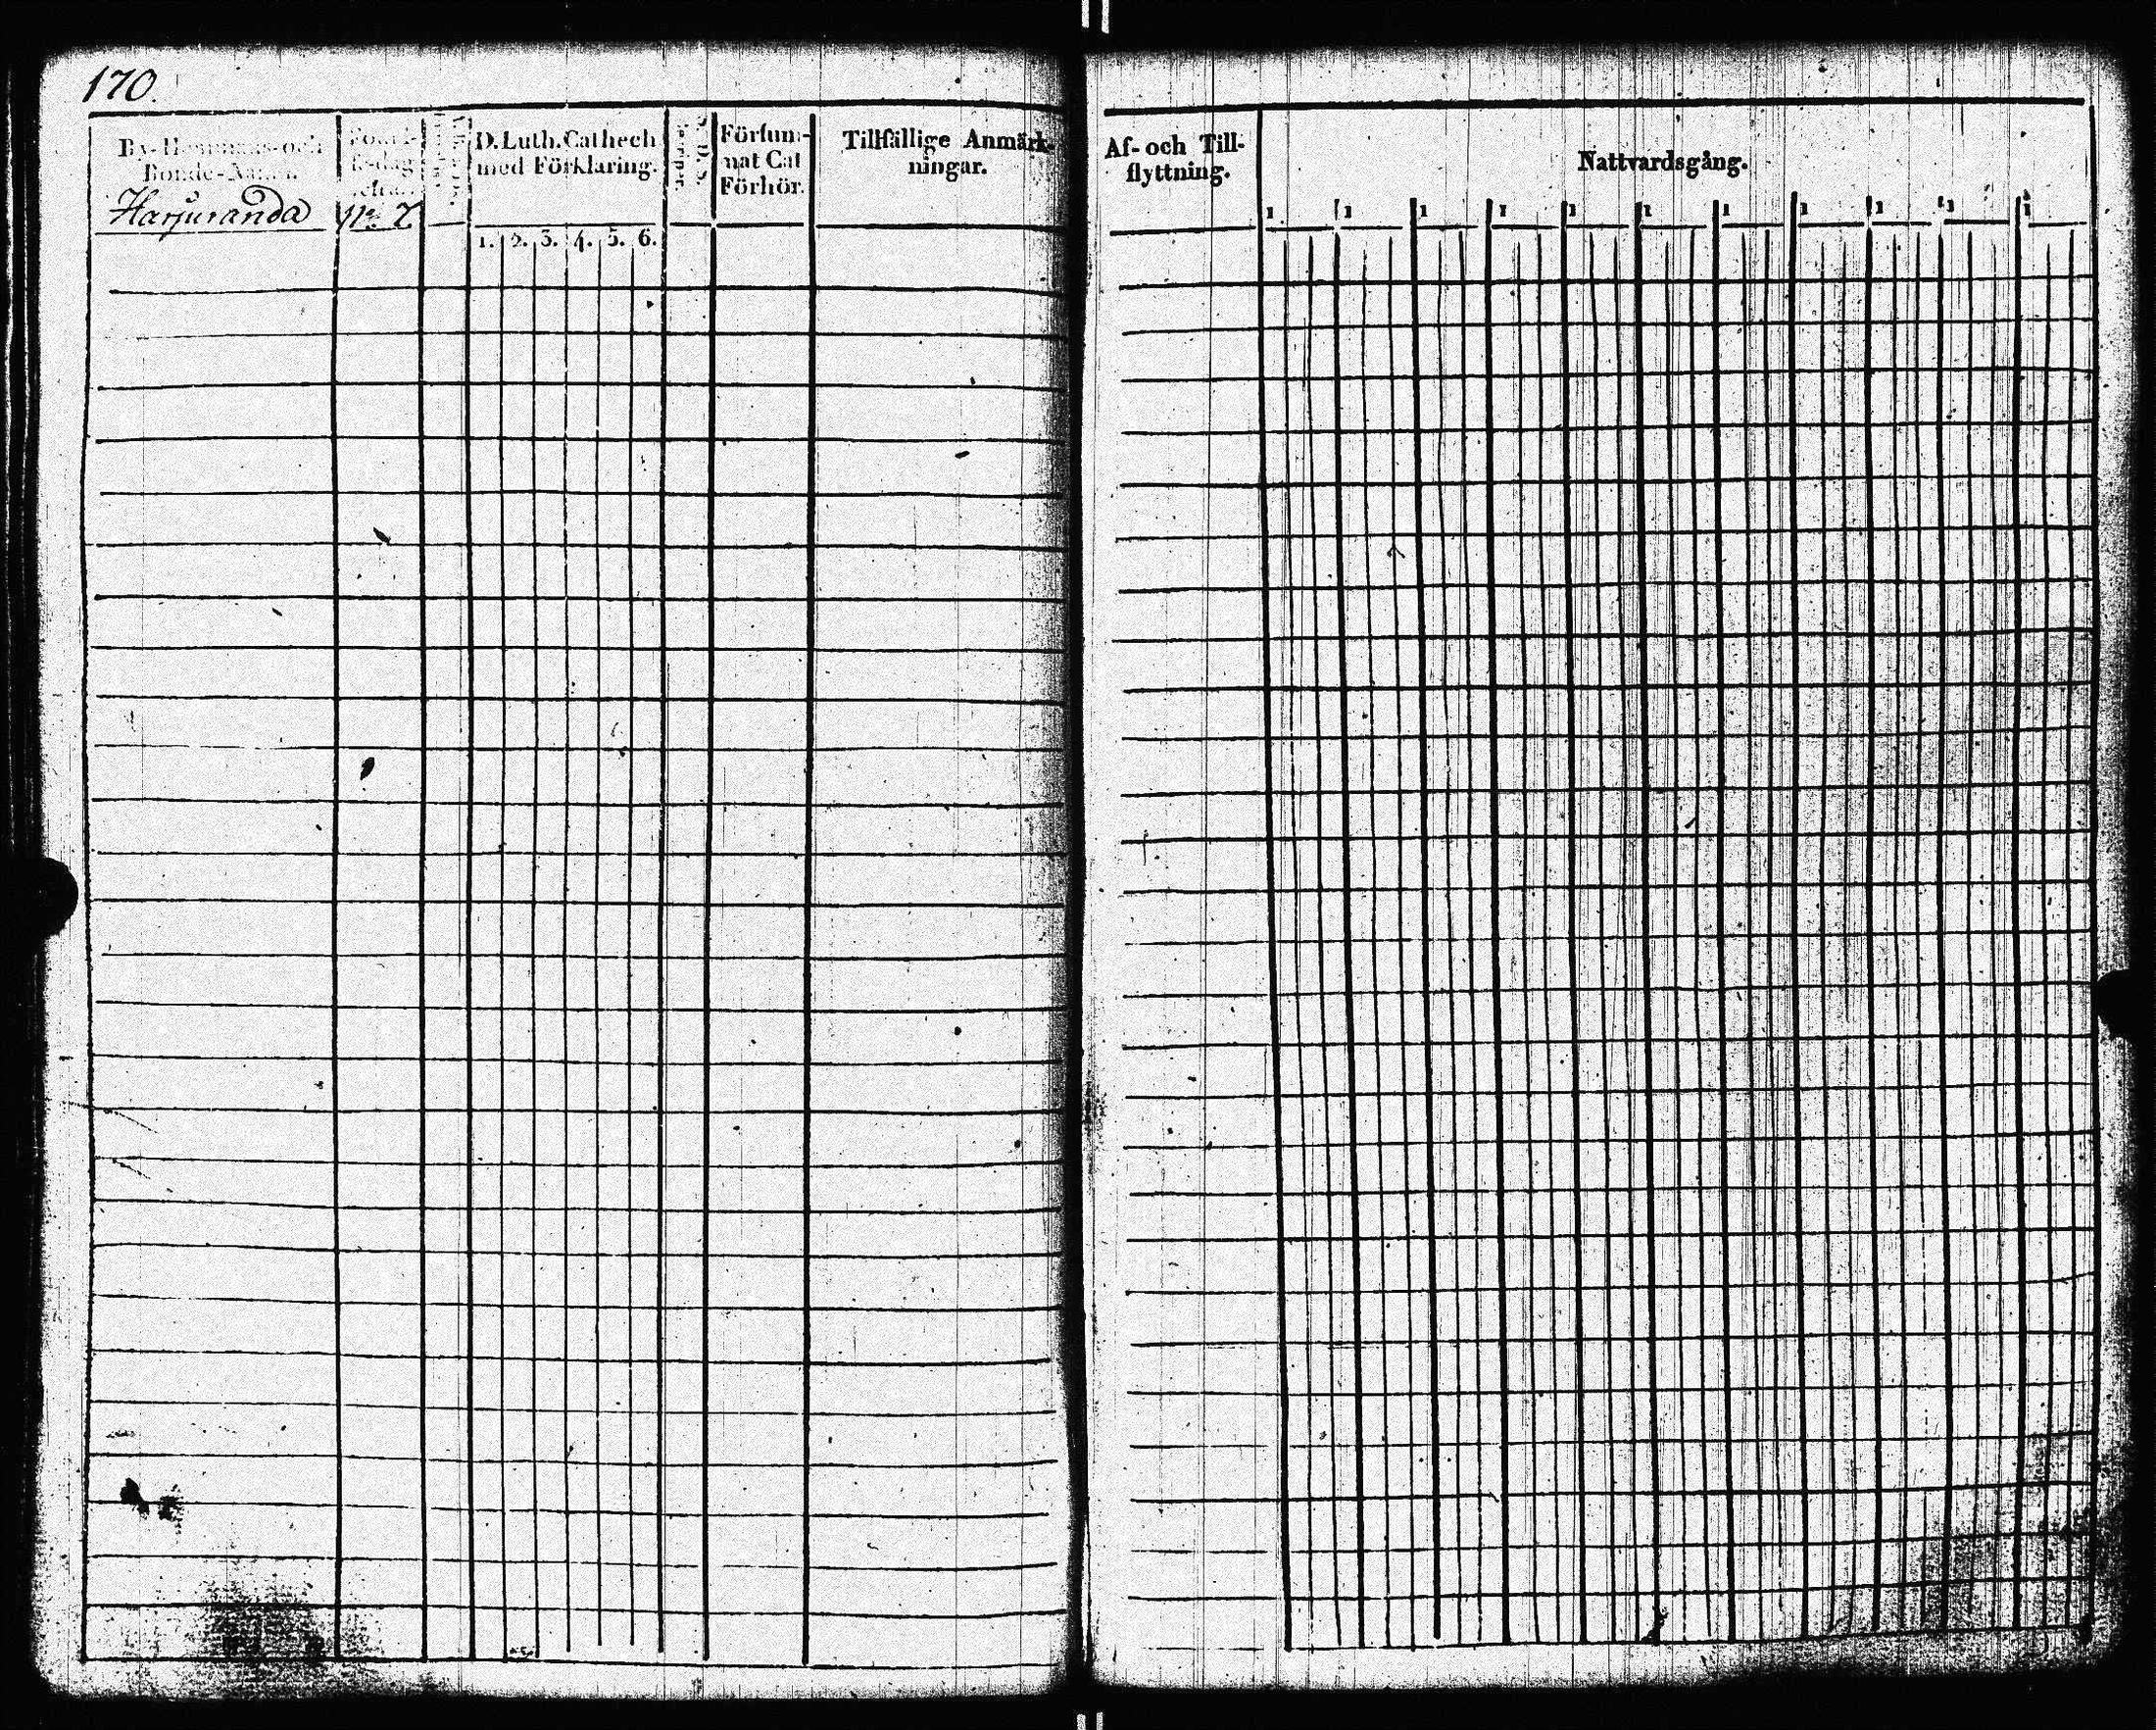 170.
By- Hemmans- och
Bonde-Namn.
Harjuranda
No 7
D. Luth. Cathech
med Förklaring.
1. 2. 3. 4. 5. 6.
Förſum-
nat Cat
Förhör.
Tillfällige Anmärk-
ningar.
Af- och Till-
flyttning.
Nattvardsgång.
1 1 1 1 1 1 1 1 1 1 1